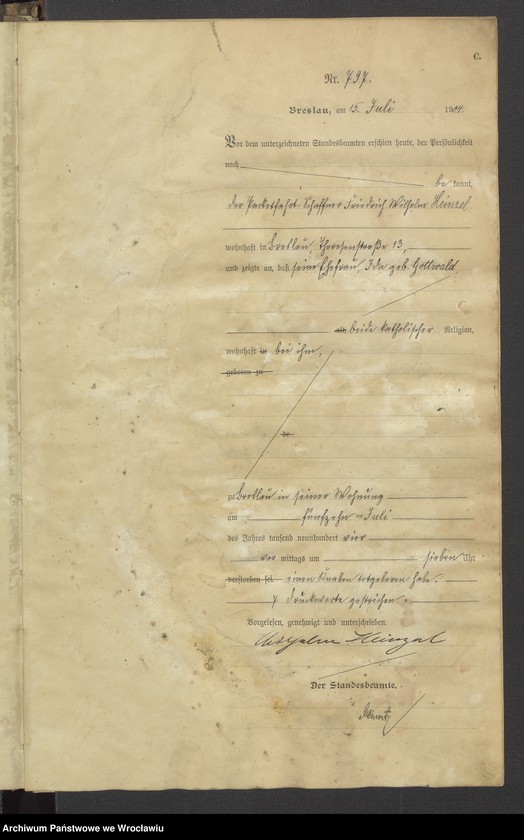 C.
Nr. 797.
Breslau, am 15. Juli 1904.
Vor dem unterzeichneten Standesbeamten erschien heute, der Persönlichkeit
nach
be kannt,
der Packetfahrt-Schaffner Friedrich Wilhelm Heinzel
wohnhaft in Breslau, Thoresenstraße 13,
und zeigte an, daß seine Ehefrau, Ida geb. Gottwald
alt, beide katholischer Religion,
wohnhaft in bei ihm,
geboren zu
de
zu Breslau in seiner Wohnung
am fünfzehn ten Juli
des Jahres tausend neunhundert vier
vor mittags um sieben Uhr
verstorben sei. einen Knaben totgeboren habe.
7 Druckworte gestrichen.
Vorgelesen, genehmigt und unterschrieben.
Wilhelm Heinzel
Der Standesbeamte.
Archiwum Państwowe we Wrocławiu